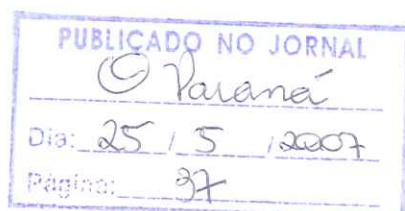 PUBLICADO NO JORNAL
O Paraná
Dia: 25 / 5 / 2007
Página: 37